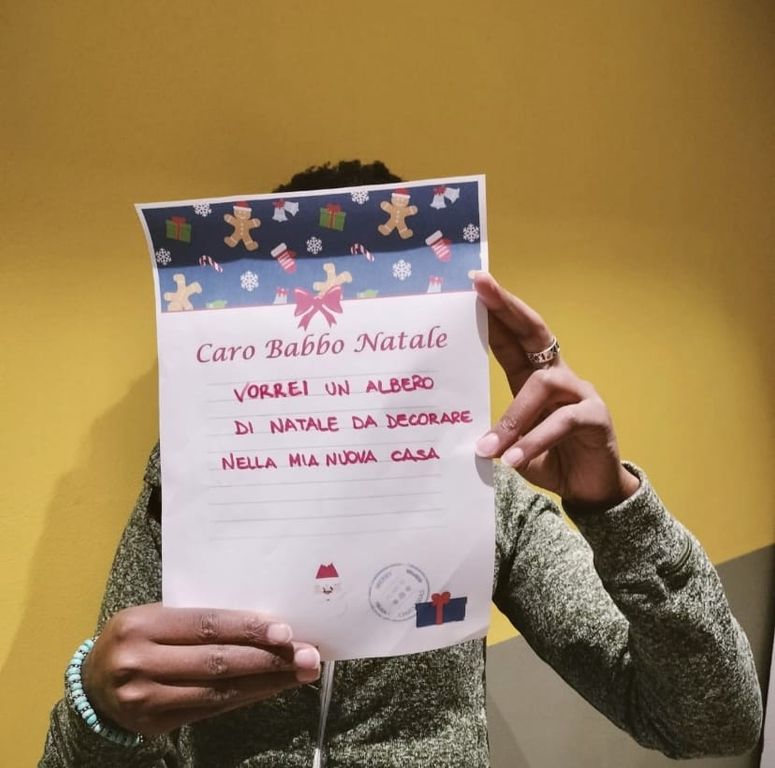 Caro Babbo Natale
VORREI UN ALBERO
DI NATALE DA DECORARE
NELLA MIA NUOVA CASA